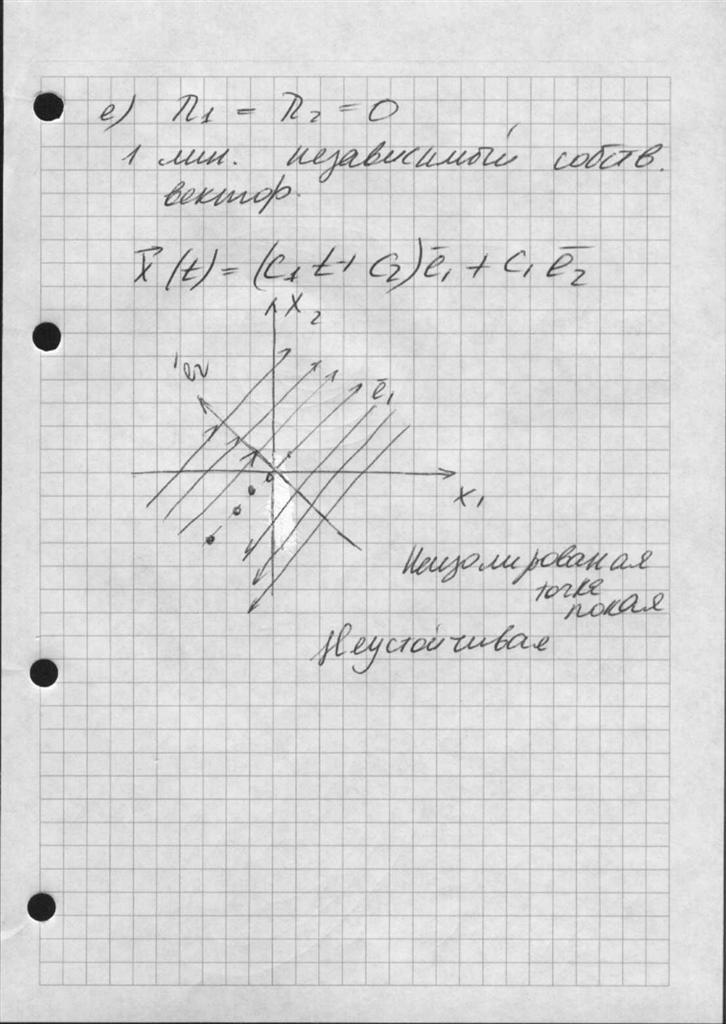 е) λ₁ = λ₂ = 0
1 лин. независимый собств.
вектор.
x⃗(t) = (C₁ t + C₂)ē₁ + C₁ ē₂
x₂
ē₂
ē₁
x₁
Неизолированая
точка
покоя
Неустойчивая